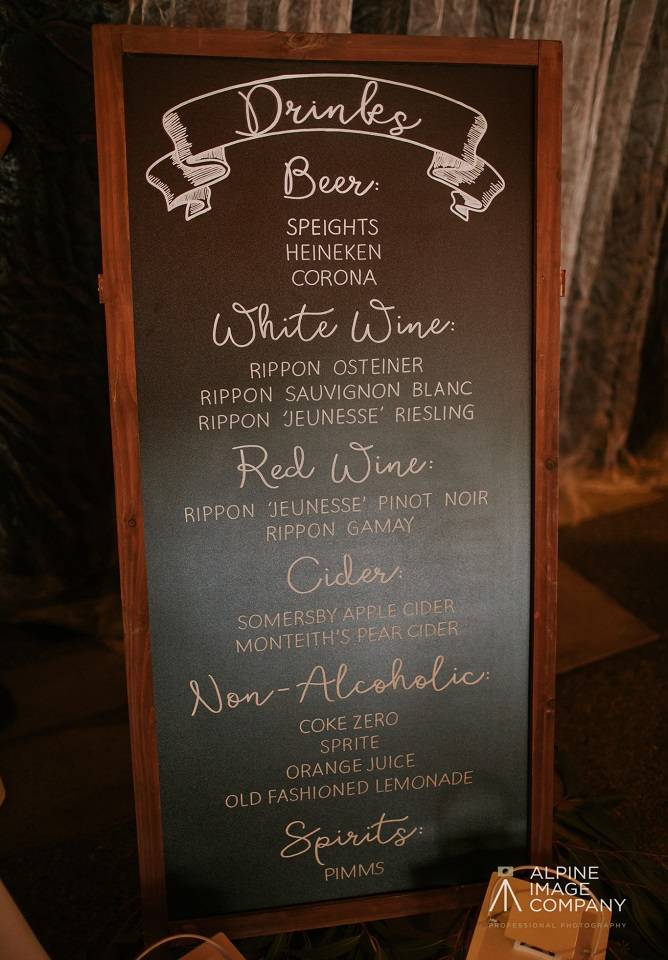 Drinks
Beer:
SPEIGHTS
HEINEKEN
CORONA
White Wine:
RIPPON OSTEINER
RIPPON SAUVIGNON BLANC
RIPPON 'JEUNESSE' RIESLING
Red Wine:
RIPPON 'JEUNESSE' PINOT NOIR
RIPPON GAMAY
Cider:
SOMERSBY APPLE CIDER
MONTEITH'S PEAR CIDER
Non-Alcoholic:
COKE ZERO
SPRITE
ORANGE JUICE
OLD FASHIONED LEMONADE
Spirits:
PIMMS
ALPINE
IMAGE
COMPANY
PROFESSIONAL PHOTOGRAPHY